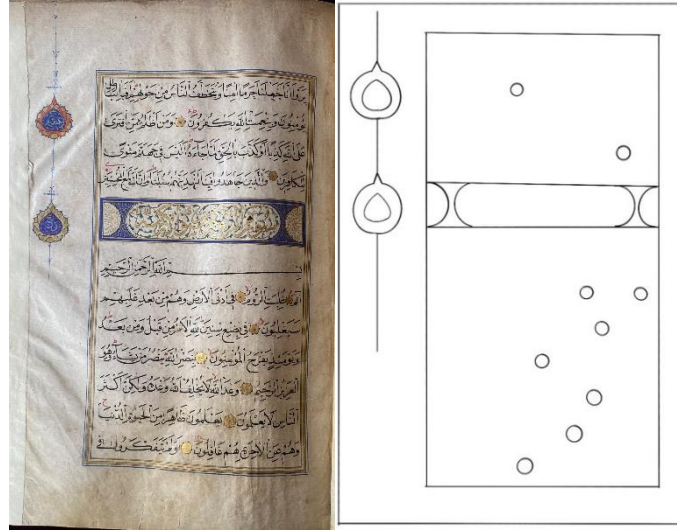 يَرَوْا اَنَّا جَعَلْنَا حَرَمًا اٰمِنًا وَيُتَخَطَّفُ النَّاسُ مِنْ حَوْلِهِمْ اَفَبِالْبَاطِلِ
يُؤْمِنُونَ وَبِنِعْمَتِ اللّٰهِ يَكْفُرُونَ وَمَنْ اَظْلَمُ مِمَّنِ افْتَرٰى
عَلَى اللّٰهِ كَذِبًا اَوْ كَذَّبَ بِالْحَقِّ لَمَّا جَاءَهُ اَلَيْسَ فِي جَهَنَّمَ مَثْوًى
لِلْكَافِرِينَ وَالَّذِينَ جَاهَدُوا فِينَا لَنَهْدِيَنَّهُمْ سُبُلَنَا وَاِنَّ اللّٰهَ لَمَعَ الْمُحْسِنِينَ
بِسْمِ اللّٰهِ الرَّحْمٰنِ الرَّحِيمِ
الٓمٓ غُلِبَتِ الرُّومُ فِي اَدْنَى الْاَرْضِ وَهُمْ مِنْ بَعْدِ غَلَبِهِمْ
سَيَغْلِبُونَ فِي بِضْعِ سِنِينَ لِلّٰهِ الْاَمْرُ مِنْ قَبْلُ وَمِنْ بَعْدُ
وَيَوْمَئِذٍ يَفْرَحُ الْمُؤْمِنُونَ بِنَصْرِ اللّٰهِ يَنْصُرُ مَنْ يَشَاءُ وَهُوَ
الْعَزِيزُ الرَّحِيمُ وَعْدَ اللّٰهِ لَا يُخْلِفُ اللّٰهُ وَعْدَهُ وَلٰكِنَّ اَكْثَرَ
النَّاسِ لَا يَعْلَمُونَ يَعْلَمُونَ ظَاهِرًا مِنَ الْحَيٰوةِ الدُّنْيَا
وَهُمْ عَنِ الْاٰخِرَةِ هُمْ غَافِلُونَ اَوَلَمْ يَتَفَكَّرُوا فِي